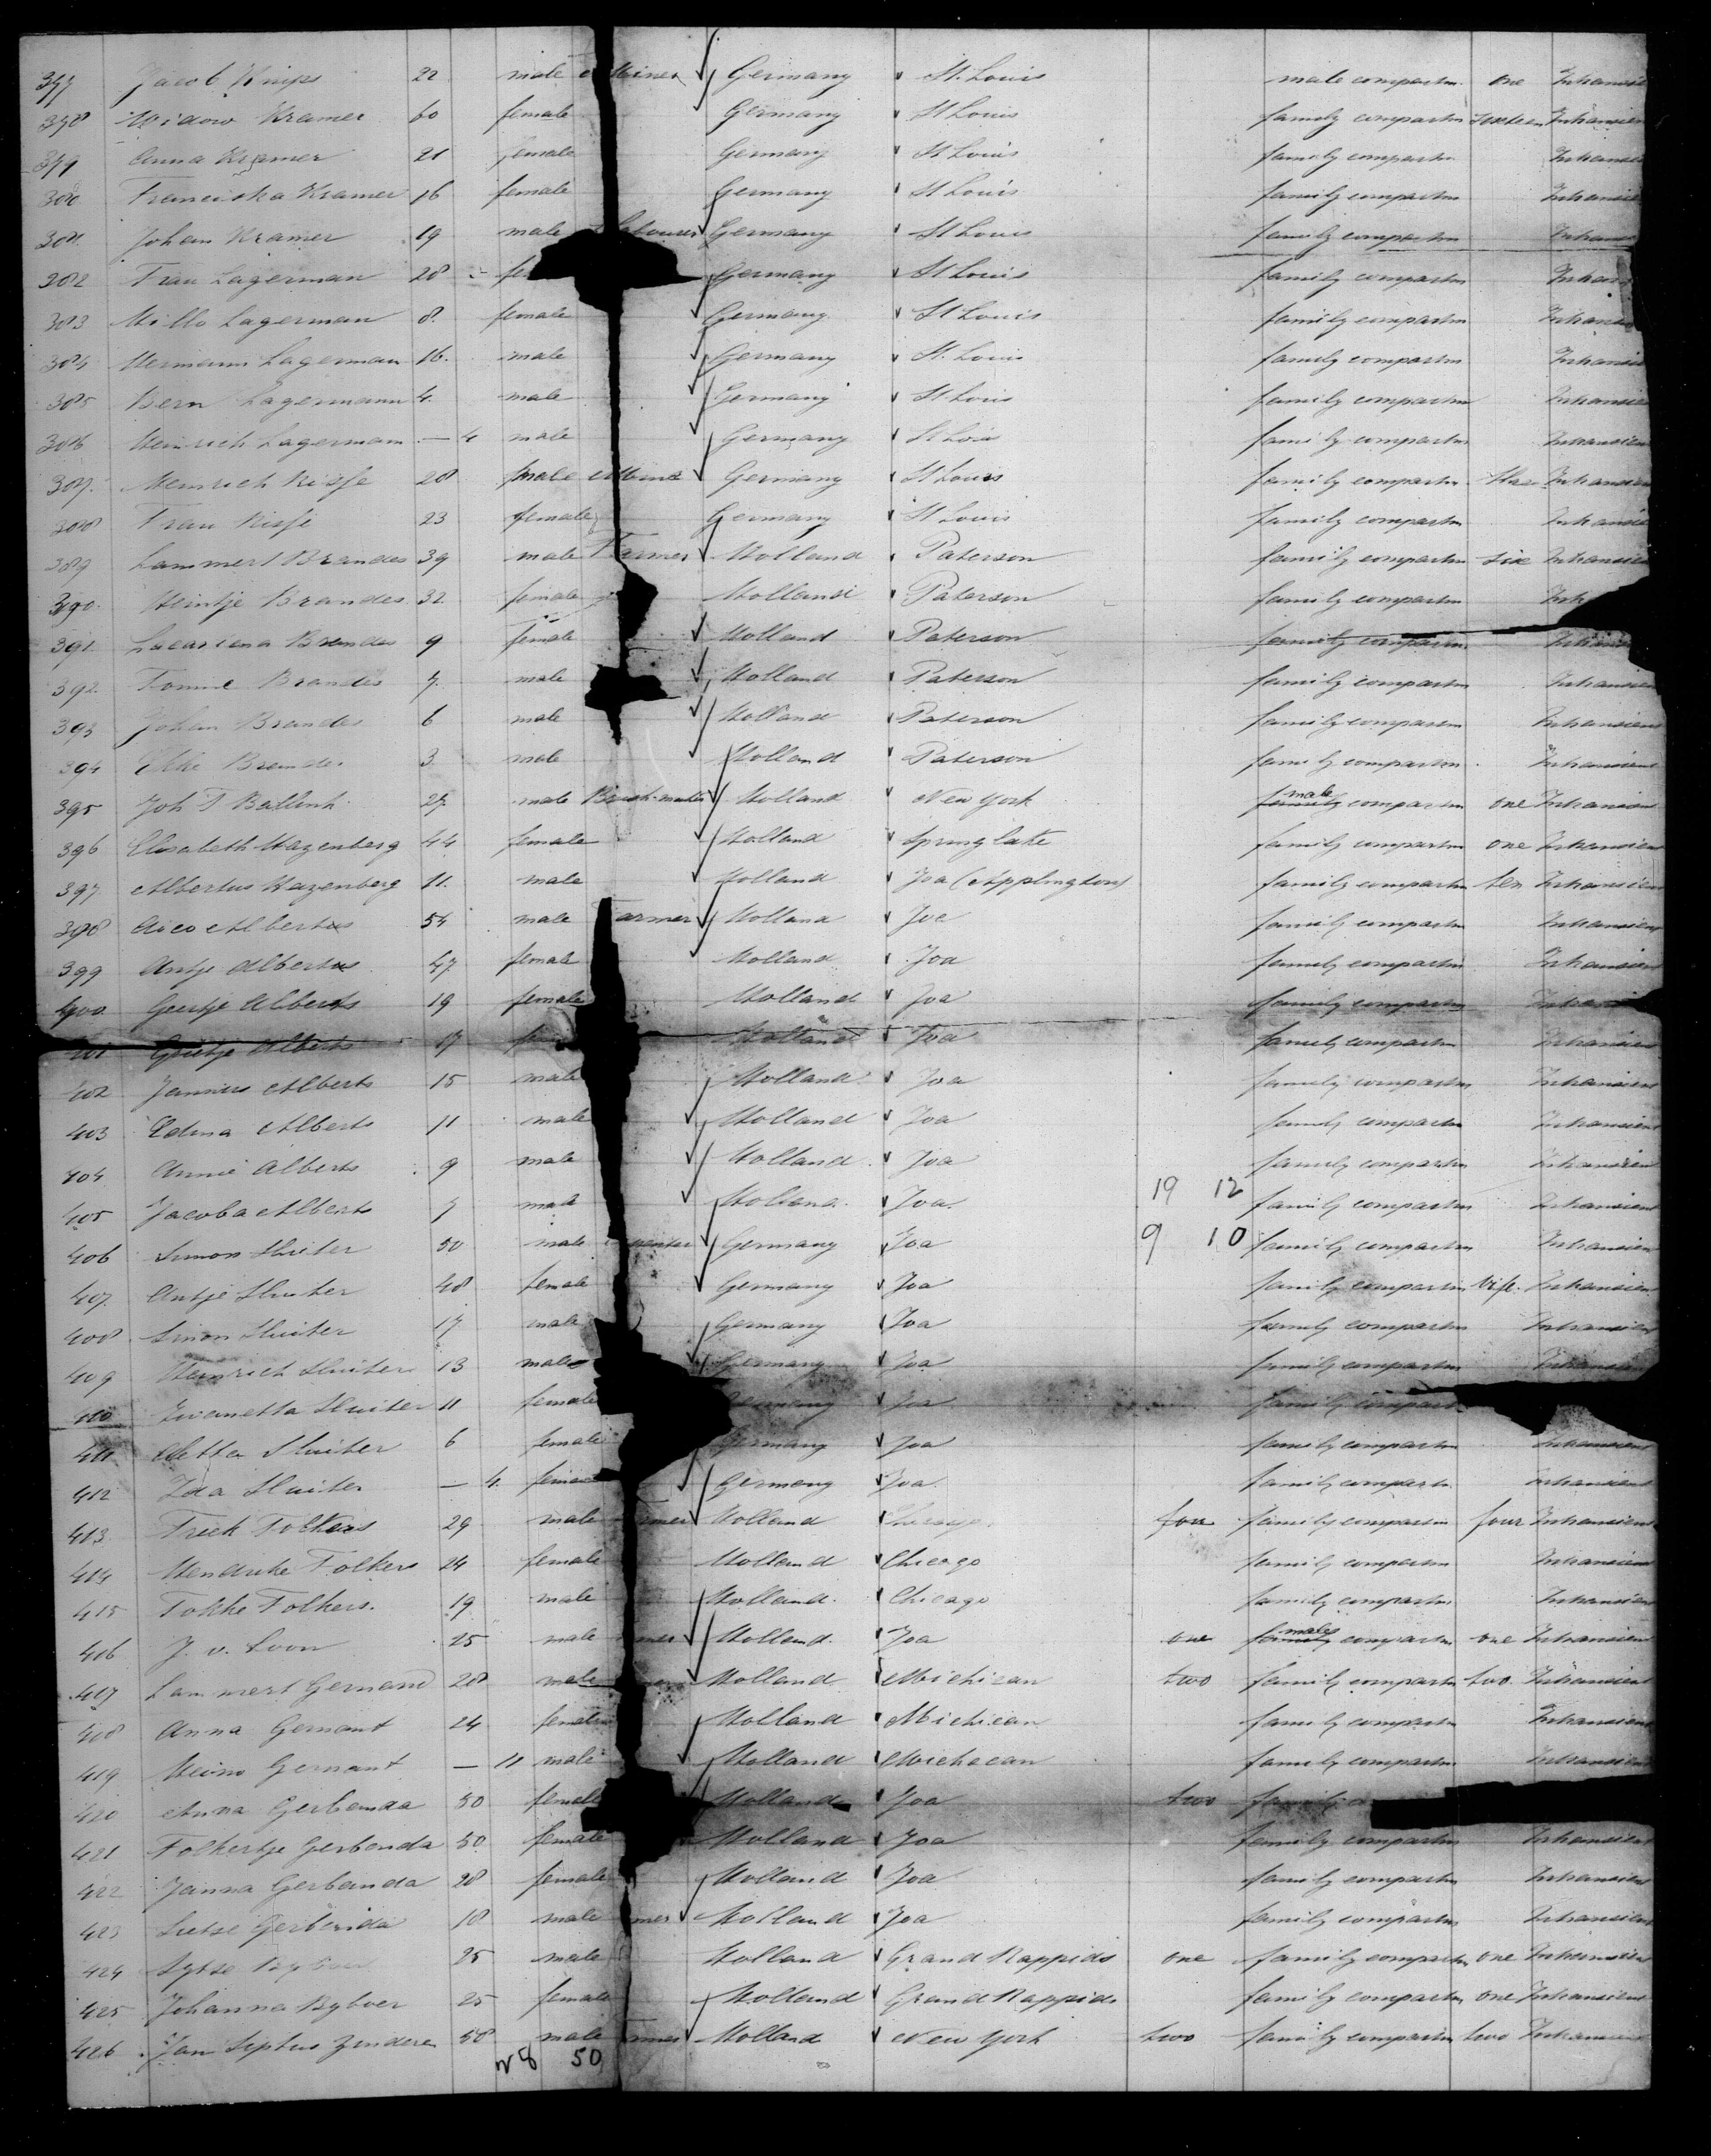 377 Jacob Knips 22 male Miner Germany St. Louis male compartm one Intransie
378 Widow Kramer 60 female Germany St Louis family compartm Intransien
379 Anna Kramer 21 female Germany St Louis family compartm Intransie
380 Franciska Kramer 16 female Germany St Louis family compartm Intransie
381 Johan Kramer 19 male Labourer Germany St Louis family compartm Intrans
382 Frau Lagerman 28 fe Germany St Louis family compartm Intrans
383 Millo Lagerman 8. female Germany St Louis family compartm Intransie
384 Hermann Lagerman 16. male Germany St. Louis family compartm Intransie
385 Bern Lagermann 4. male Germany St Louis family compartm Intransie
386 Heinrich Lagermam — 4 male Germany St Lois family compartm Intransien
387. Heinrich Risse 28 male Miner Germany St Louis family compartm Intransien
388 Frau Risse 23 female Germany St Louis family compartm Intransie
389 Lammert Brandes 39 male Farmer Holland Paterson family compartm six Intransien
390. Heintje Brandes 32 female Holland Paterson family compartm Int
391 Brandes 9 female Holland Paterson family compartm Intransi
392 Tomme Brandes 7. male Holland Paterson family compartm Intransien
393 Johan Brandes 6 male Holland Paterson family compartm Intransient
394 Brandes 3 male Holland Paterson family compartm Intransient
395 Joh T Bellink 27 male Brush-maker Holland New York male compartm one Intransien
396 Elisabeth Hazenberg 44 female Holland Spring Lake family compartm one Intransien
397 Albertus Hazenberg 11. male Holland Joa (Applington) family compartm ten Intransien
398 Aico Alberts 54 male Farmer Holland Joa family compartm Intransien
399 Antje Alberts 47 female Holland Joa family compartm Intransien
400 Geertje Alberts 19 female Holland Joa family compartm Intransi
401 Grietje Alberts 17 fem Holland Joa family compartm Intransient
402 Alberts 15 male Holland Joa family compartm Intransient
403 Edena Alberts 11 male Holland Joa family compartm Intransient
404 Annie Alberts 9 male Holland Joa family compartm Intransient
19 12
405 Jacoba Alberts 7 male Holland Joa. family compartm Intransient
9 10
406 Simon Sluiter 50 male Germany Joa family compartm Intransien
407. Antje Sluiter 48 female Germany Joa family compartm Intransien
408 Simon Sluiter 17. male Germany Joa family compartm Intransien
409 Heinrich Sluiter 13 male Germany Joa family compartm Intransient
410 Sluiter 11 female Germany Joa family compart
411 Aletta Sluiter 6 female Germany Joa family compartm Intransient
412 Ida Sluiter — 4. female Germany Joa. family compartm Intransient
413 Freek Folkers 29 male rmer Holland Chicago. four family compartm four Intransient
414 Hendrike Folkers 24 female Holland Chicago family compartm Intransient
415 Fokke Folkers. 19 male Holland. Chicago family compartm Intransient
406 J. v. Loon 25 male rmer Holland. Joa one males compartm one Intransient
417 Lammert Gernand 28 male Holland Michigan two family compartm two Intransient
418 Anna Gernant 24 female Holland Michican family compartm Intransient
419 Heino Gernant — 11 male Holland Michecan family compartm Intransient
420 Anna Gerbenda 50 female Holland Joa two family
421 Folkertje Gerbenda 50 female Holland Joa family compartm Intransient
422 Janna Gerbenda 28 female Holland Joa family compartm Intransient
423 Sietse Gerbenda 18 male rmer Holland Joa family compartm Intransient
424 Sytse 25 male Holland Grand Rappids one family compartm one Intransient
425 Johanna Byboer 25 female Holland Grand Rappids family compartm one Intransient
426 Jan Zendere 58 male rmer Holland New York two family compartm two Intransient
50